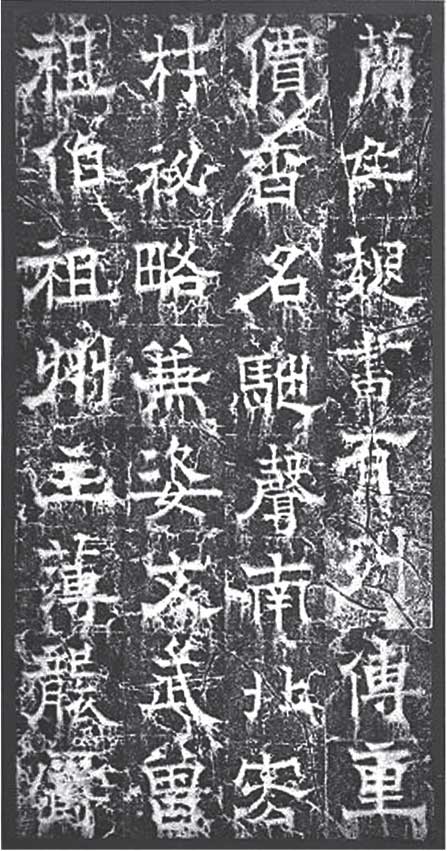 蘭侯魏書有列傳重
價香名馳聲南北密
材祕略兼姿文武曾
祖伯祖州主薄龍驤